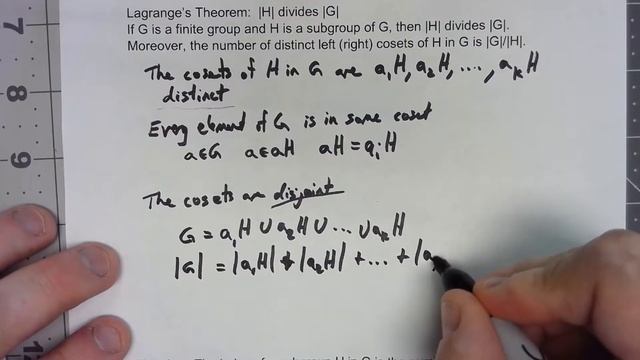 Lagrange's Theorem: |H| divides |G|
If G is a finite group and H is a subgroup of G, then |H| divides |G|.
Moreover, the number of distinct left (right) cosets of H in G is |G|/|H|.
The cosets of H in G are a₁H, a₂H, ...., aₖH
distinct
Every element of G is in some coset
a∈G a∈aH aH = aᵢH
The cosets are disjoint
G = a₁H ∪ a₂H ∪ ... ∪ aₖH
|G| = |a₁H| + |a₂H| + ... + |a
7
8
9